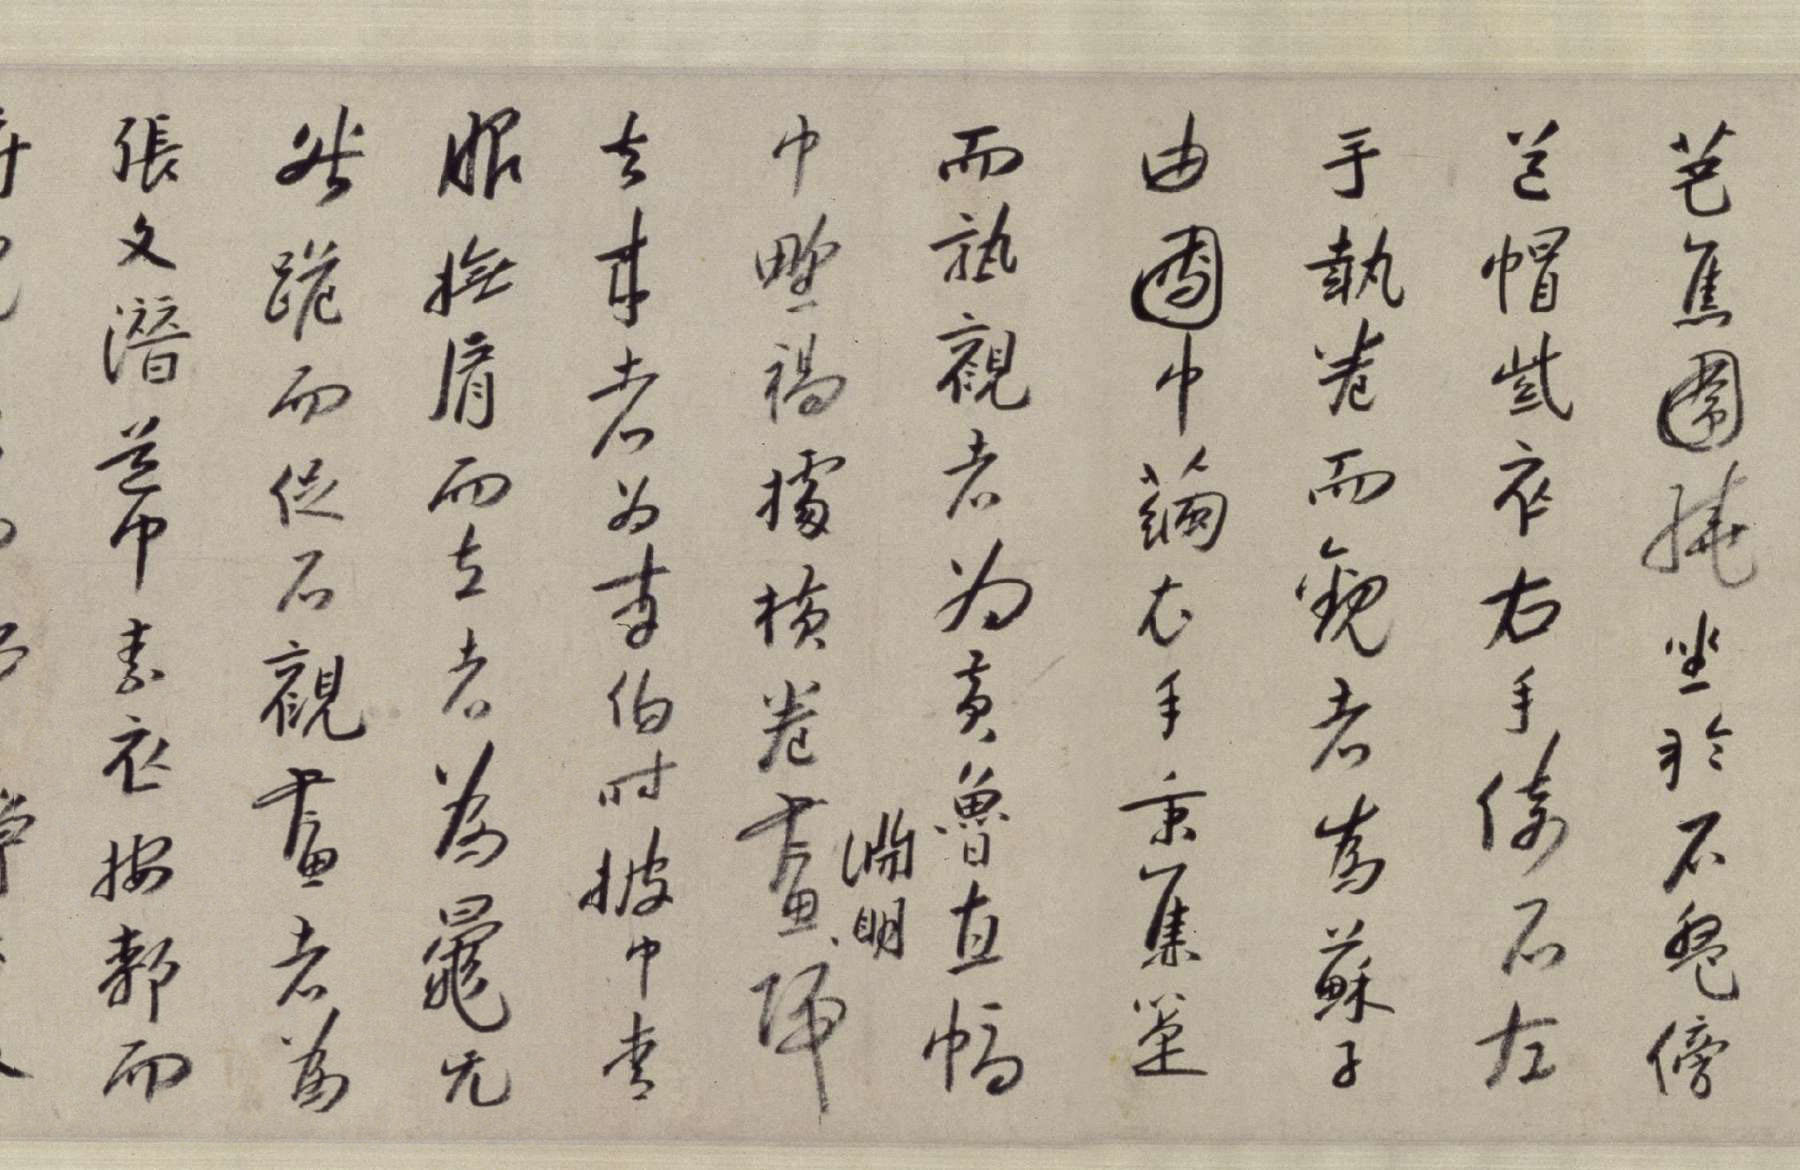 芭蕉圍繞坐於石盤傍
道帽紫衣右手倚石左
手執卷而觀者為蘇子
由團巾繭衣手秉蕉箑
而熟觀者為黃魯直幅
巾野褐據橫卷畫淵明歸
去來者為李伯時披巾青
服撫肩而立者為鼂无
咎跪而捉石觀畫者為
張文潛道巾素衣按膝而